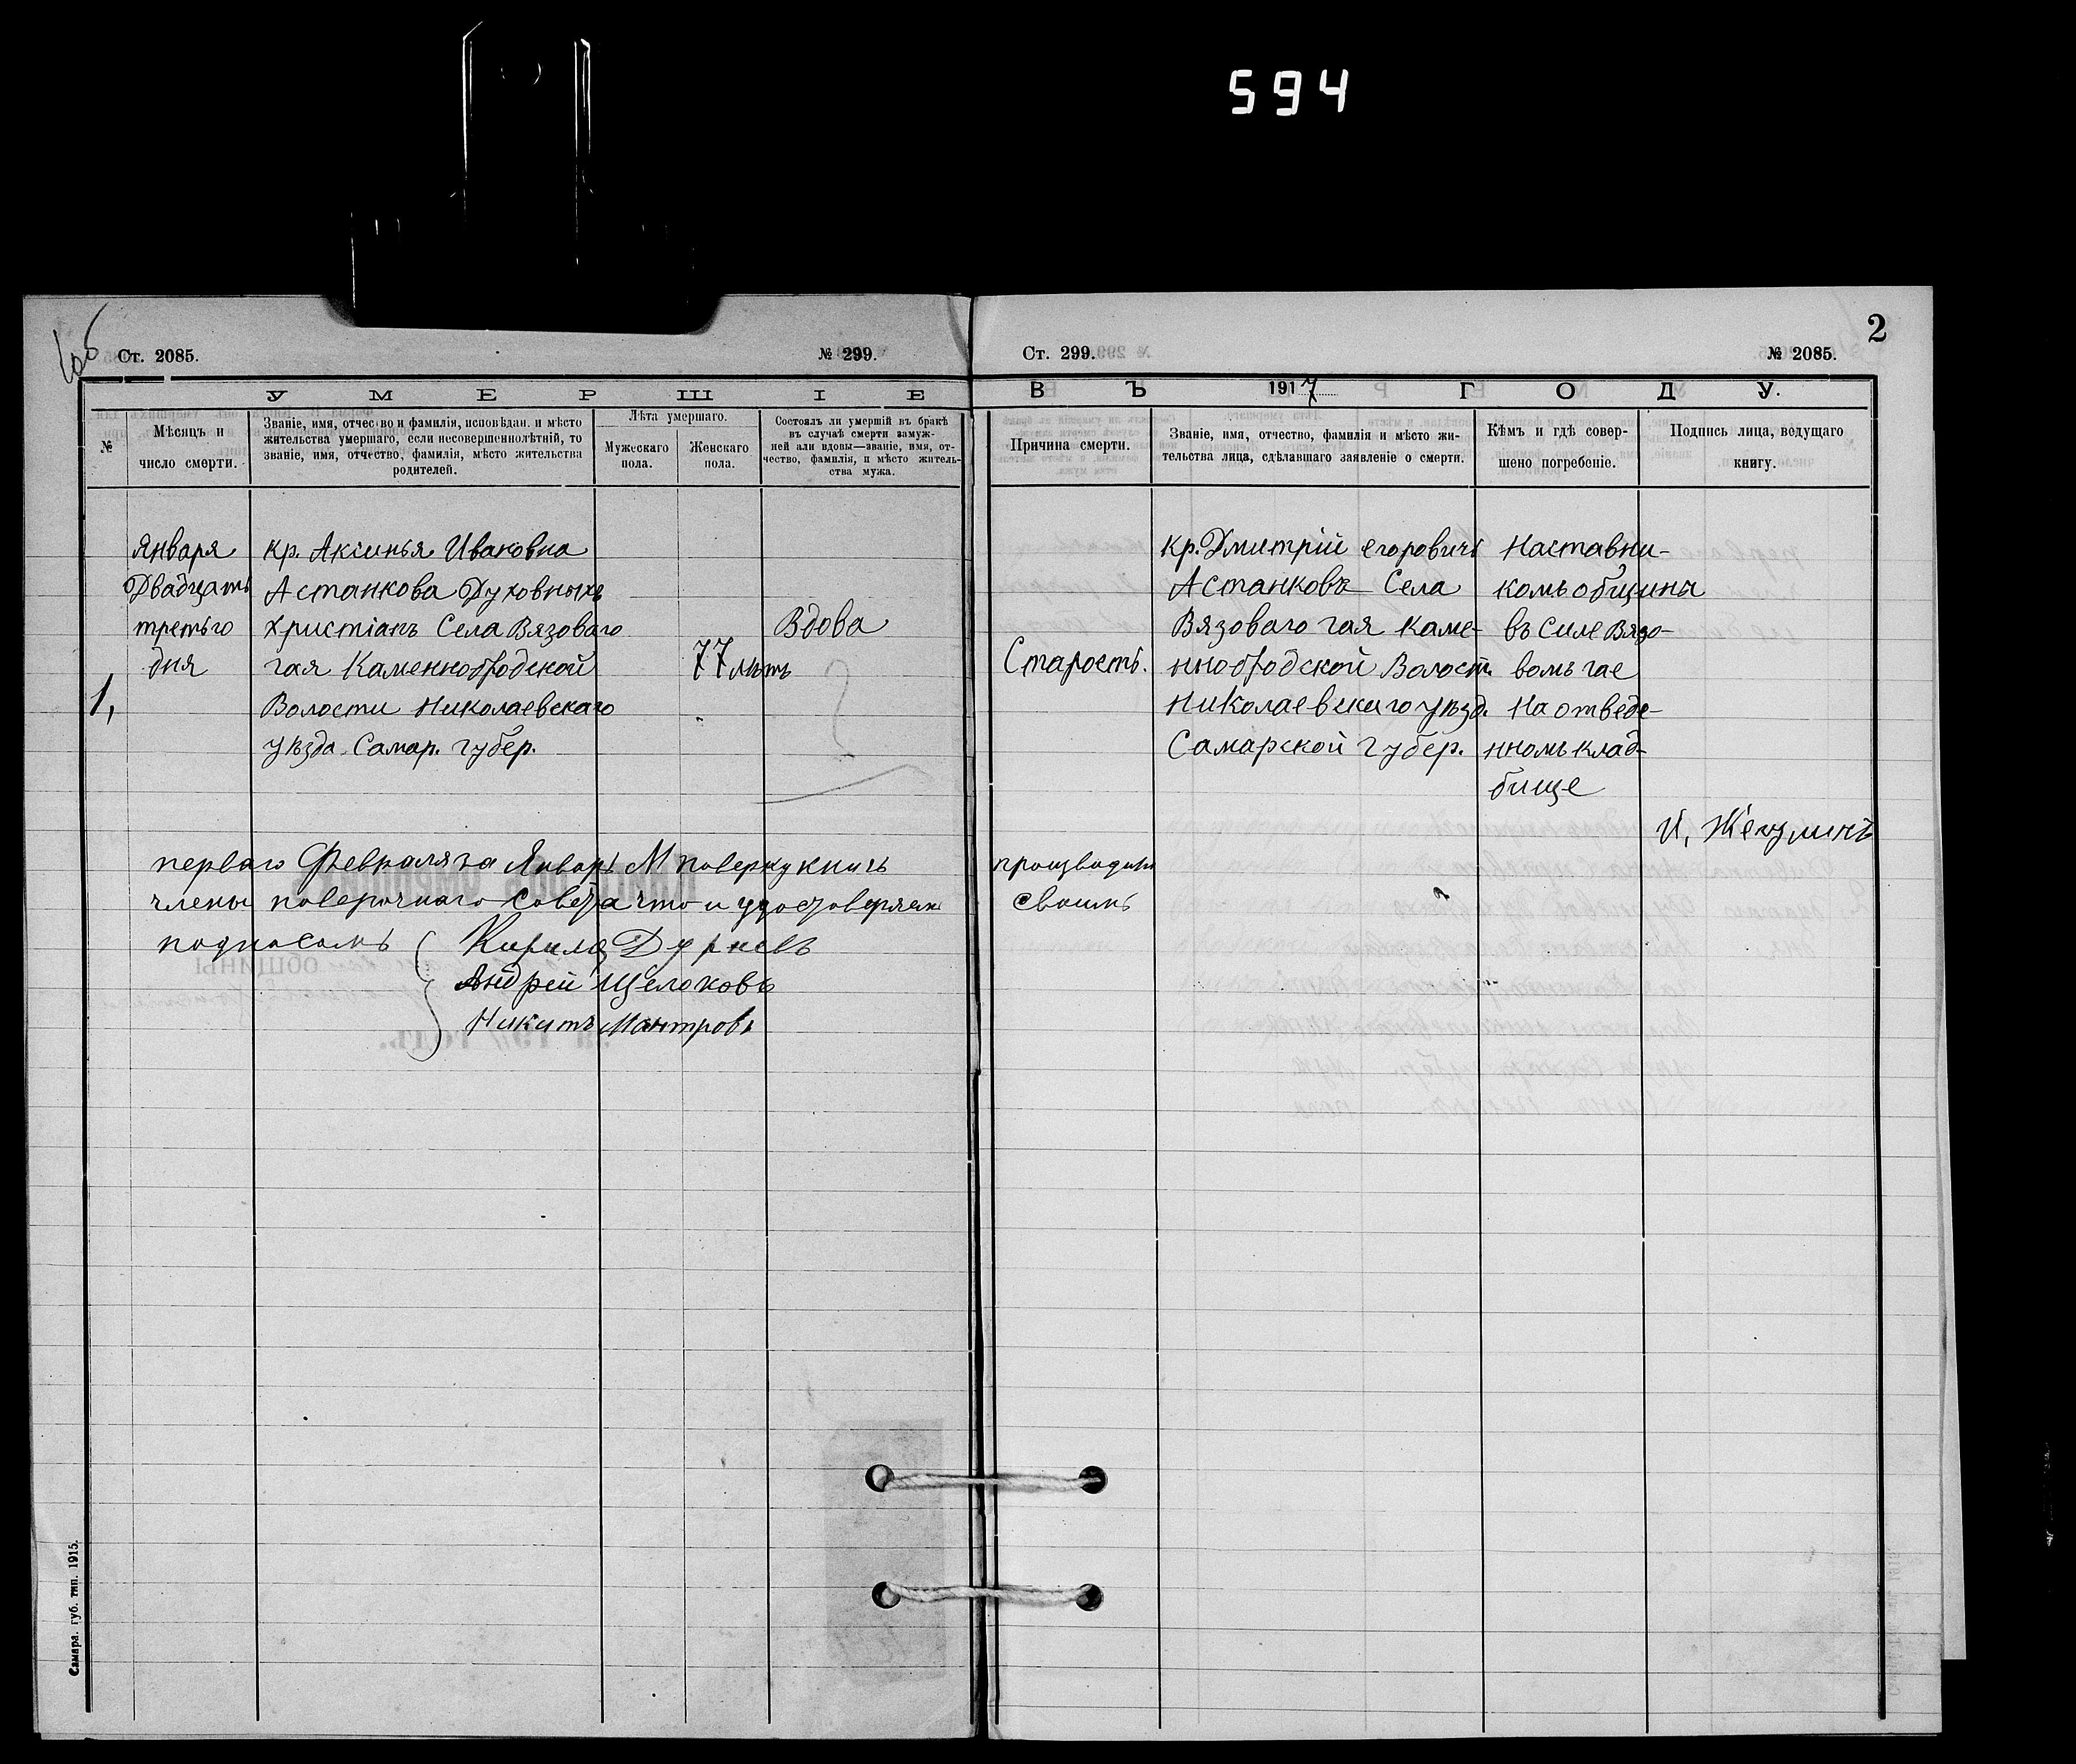 594
2
Ст. 2085.
№ 299.
Ст. 299.
№ 2085.
УМЕРШІЕ
ВЪ 1917 ГОДУ.
№
Мѣсяцъ и
число смерти.
Званіе, имя, отчество и фамилія, исповѣдан. и мѣсто
жительства умершаго, если несовершеннолѣтній, то
званіе, имя, отчество, фамилія, мѣсто жительства
родителей.
Лѣта умершаго.
Мужескаго
пола.
Женскаго
пола.
Состоялъ ли умершій въ бракѣ
въ случаѣ смерти замуж-
ней али вдовы—званіе, имя, от-
чество, фамилія, и мѣсто житель-
ства мужа.
Причина смерти.
Званіе, имя, отчество, фамилія и мѣсто жи-
тельства лица, сдѣлавшаго заявленіе о смерти.
Кѣмъ и гдѣ совер-
шено погребеніе.
Подпись лица, ведущаго
книгу.
1,
Января
Двадцать
третьго
дня
кр. Аксинья Ивановна
Астанкова Духовныхъ
христіанъ Села Вязоваго
гая Каменнобродской
Волости Николаевскаго
уѣзда Самар. губер.
77 лѣтъ
Вдова
Старость.
кр. Дмитрій егоровичъ
Астанковъ Села
Вязоваго гая Каме-
ннобродской Волост.
Николаевскаго уѣзд.
Самарской губер.
Наставни-
комъ общины
въ Силе Вязо-
вомъ гае
На отведе-
нномъ клад-
бище
перваго Февраля за Январь М поверку книгъ производили
члены поверочнаго совета что и удостоверяем своимъ
подписомъ
Кирила Дурневъ
Андрей Щелоковъ
Никитъ Мантровъ
Самара. губ. тип. 1915.